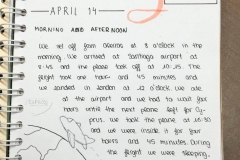 APRIL 14
MORNING AND AFTERNOON
We set off from Oleiros at 8 o'clock in the
morning. We arrived at Santiago airport at
9:45 and the plane took off at 10:25. The
flight took one hour and 45 minutes and
we landed in London at 12 o'clock. We ate
at the airport and we had to wait four
hours until the next plane left for Cy-
prus. We took the plane at 16:30
and we were inside it for four
hours and 45 minutes. During
the flight we were sleeping,